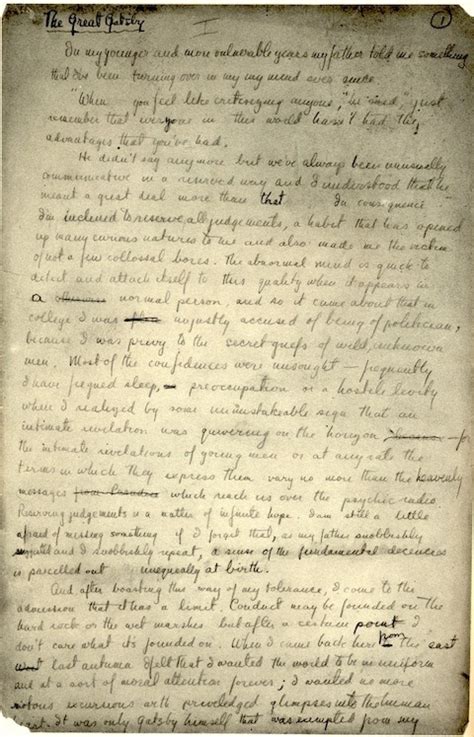 The Great Gatsby
I
1
In my younger and more vulnerable years my father told me something
that I've been turning over in my my mind ever since.
"When you feel like critisizing anyone," he said, "just
remember that everyone in this world hasn't had the
advantages that you've had.
He didn't say anymore but we've always been unusually
communicative in a reserved way and I understood that he
meant a great deal more than that. In consequence
I'm inclined to reserve all judgements, a habit that has opened
up many curious natures to me and also made me the victim
of not a few collossal bores. The abnormal mind is quick to
detect and attach itself to this quality when it appears in
a normal person, and so it came about that in
college I was unjustly accused of being of politician,
because I was privy to the secret griefs of wild, unknown
men. Most of the confidences were unsought — frequently
I have fiegned sleep, preoccupation or a hostile levity
when I realized by some unmistakeable sign that an
intimate revelation was quivering on the horizon — for
the intimate revelations of young men or at any rate the
terms in which they express them vary no more than the heavenly
messages from Paradise which reach us over the psychic radio.
Reserving judgements is a matter of infinite hope. I am still a little
afraid of missing something if I forget that, as my father snobbishly
and I snobbishly repeat, a sense of the fundamental decencies
is parcelled out unequally at birth.
And after boasting this way of my tolerance, I come to the
admission that it has a limit. Conduct may be founded on the
hard rock or the wet marshes but after a certain point I
don't care what it's founded on. When I came back here from the east
last autumn I felt that I wanted the world to be in uniform
and at a sort of moral attention forever; I wanted no more
riotous excursions with priviledged glimpses into the human
heart. It was only Gatsby himself that was exempted from my